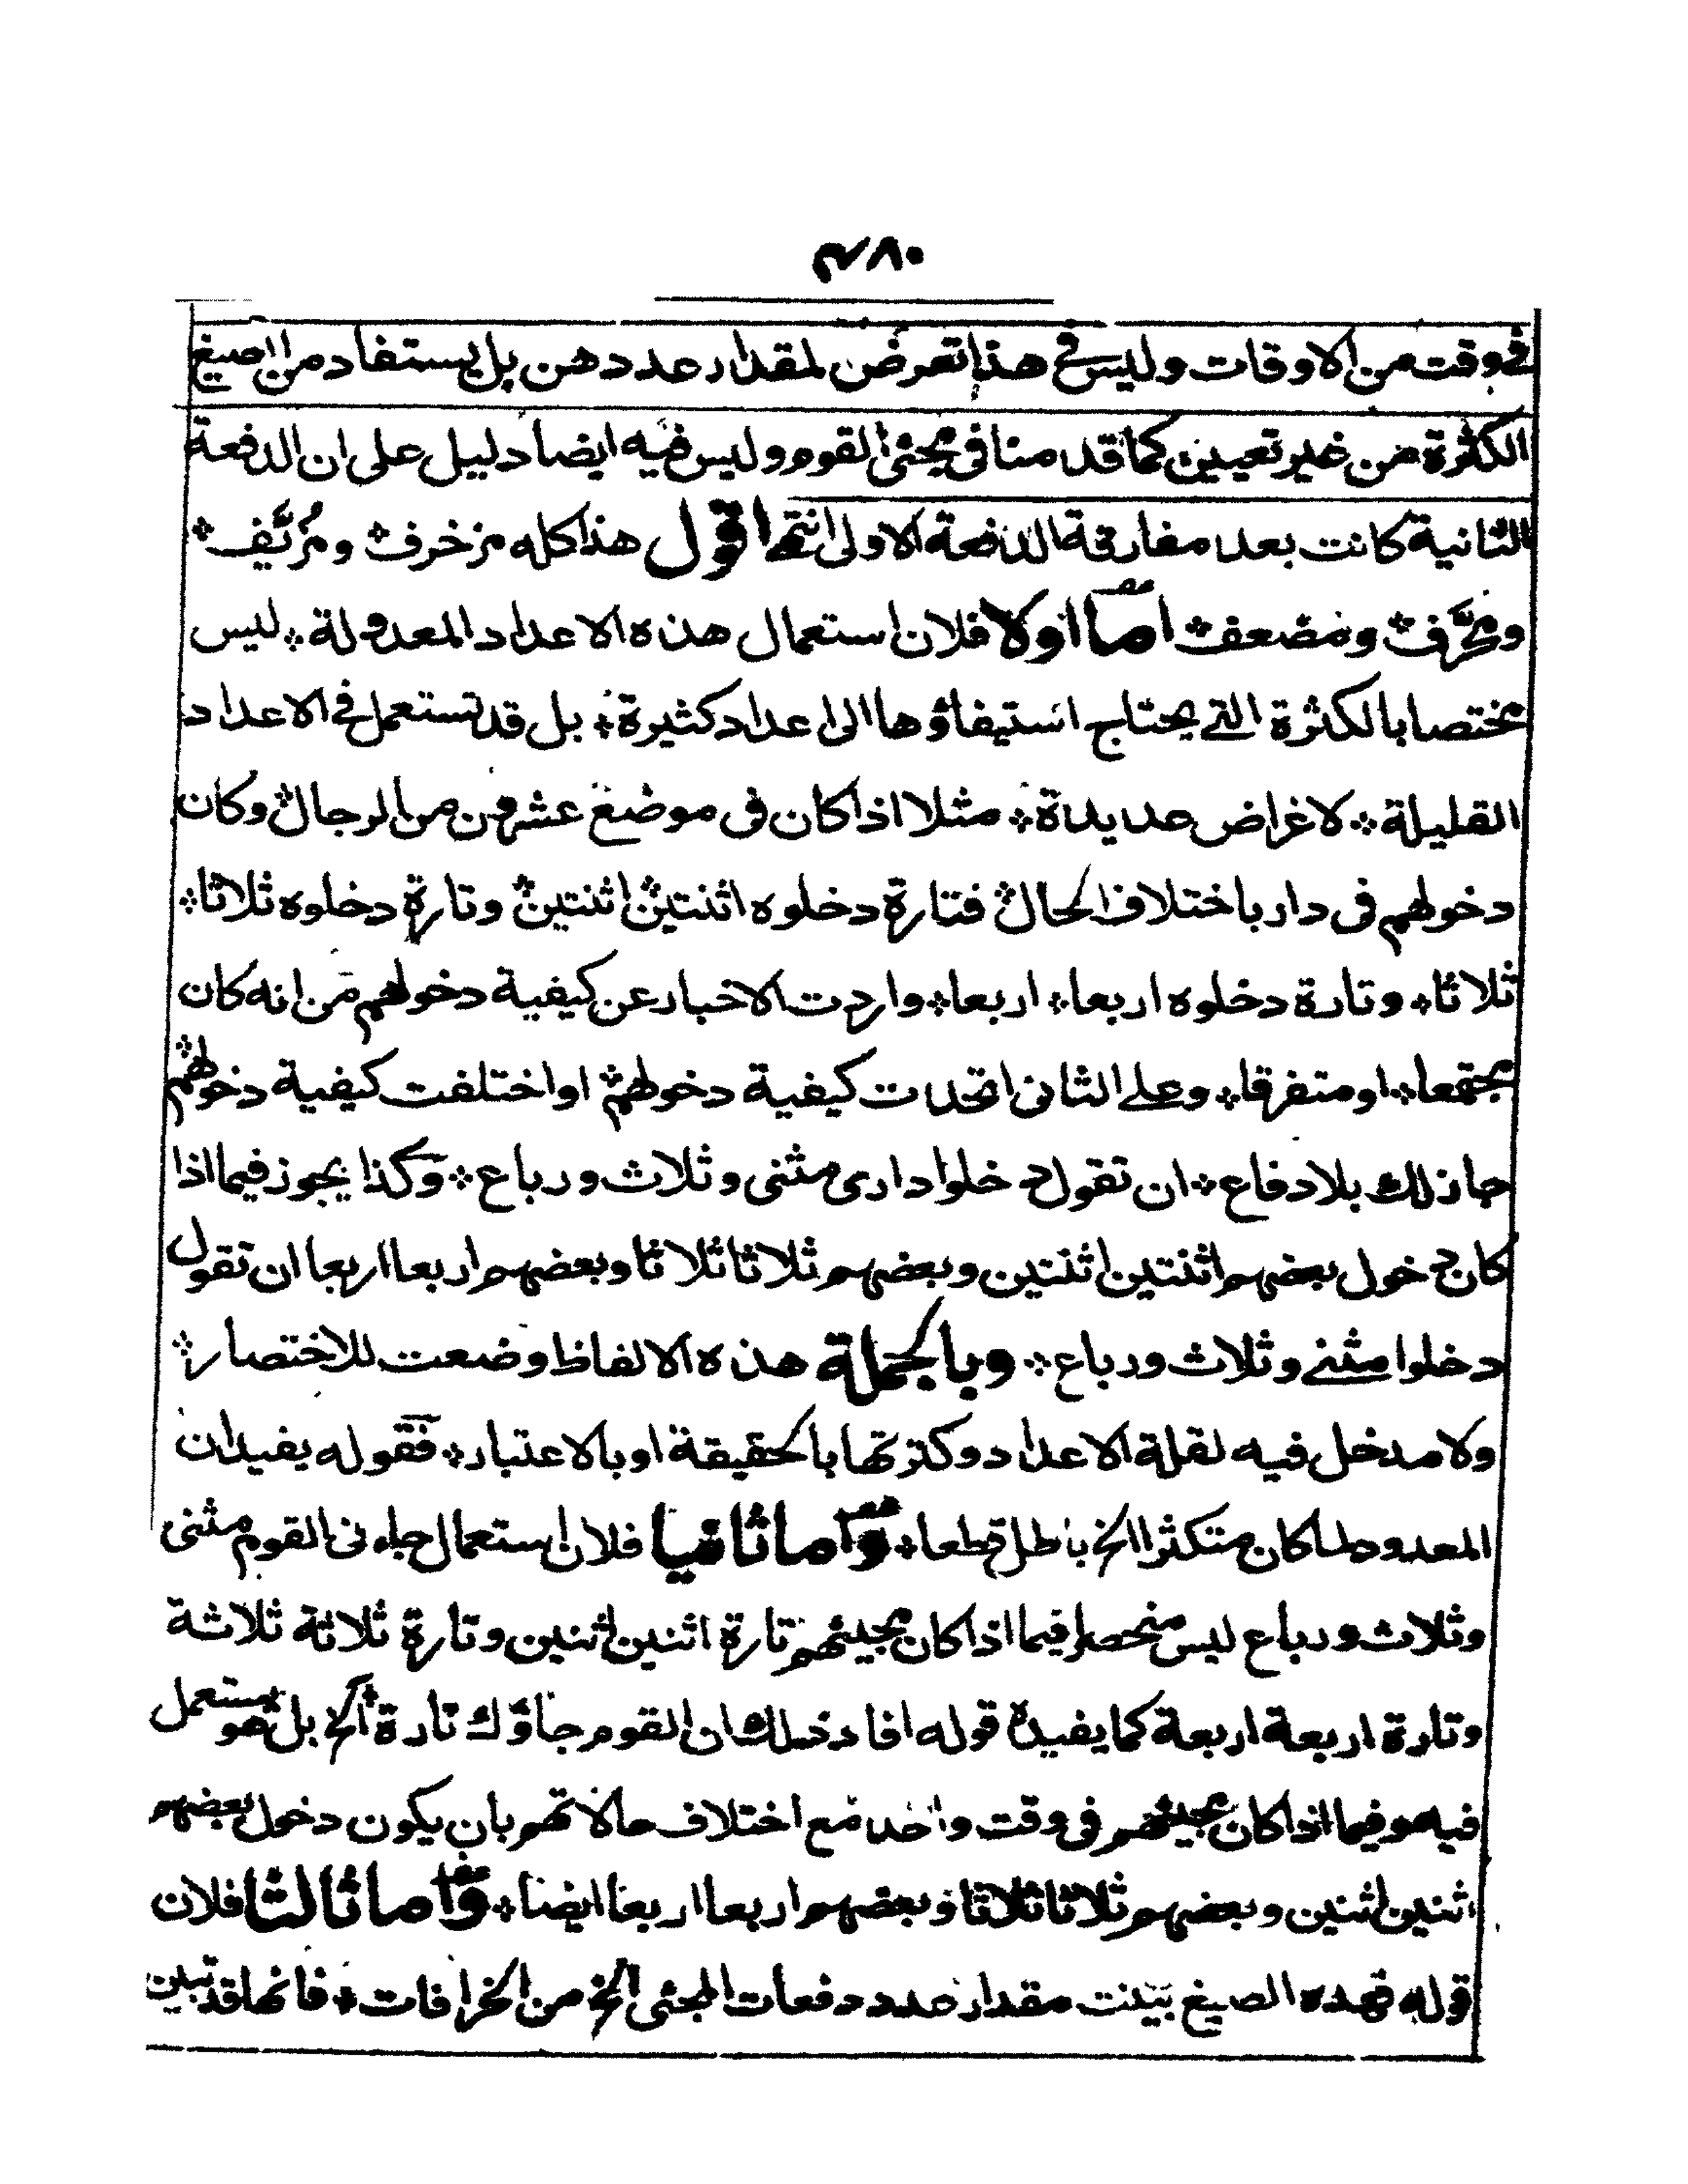 ٤٨٠
فى وقت من الاوقات وليس فى هذا تعرض لمقدار عددهن بل يستفاد من الصيغ
الكثرة من غير تعيين كما قدمنا فى مجئ القوم وليس فيه ايضا دليل على ان الدفعة
الثانية كانت بعد مفارقة الدفعة الاولى انتهى اقول هذا كله مزخرف ومُزيَّف
ومحرَّف ومضعف اما اولا فلان استعمال هذه الاعداد المعدولة ليس
مختصا بالكثرة التى يحتاج استيفاؤها الى اعداد كثيرة بل قد تستعمل فى الاعداد
القليلة لاغراض عديدة مثلا اذا كان فى موضع عشرون من الرجال وكان
دخولهم فى دار باختلاف الحال فتارة دخلوه اثنتين اثنتين وتارة دخلوه ثلاثا
ثلاثا وتارة دخلوه اربعا اربعا واردت الاخبار عن كيفية دخولهم من انه كان
مجتمعا او متفرقا وعلى الثانى اتحدت كيفية دخولهم او اختلفت كيفية دخولهم
جاز ذلك بلا دفاع ان تقول دخلوا دارى مثنى وثلاث ورباع وكذا يجوز فيما اذا
كان دخول بعضهم اثنتين اثنتين وبعضهم ثلاثا ثلاثا وبعضهم اربعا اربعا ان تقول
دخلوا مثنى وثلاث ورباع وبالجملة هذه الالفاظ وضعت للاختصار
ولا مدخل فيه لقلة الاعداد وكثرتها بالحقيقة او بالاعتبار فقوله يفيد ان
المعدود لما كان متكثرا الخ باطل قطعا واما ثانيا فلان استعمال جاءنى القوم مثنى
وثلاث ورباع ليس منحصرا فيما اذا كان مجيئهم تارة اثنين اثنين وتارة ثلاثة ثلاثة
وتارة اربعة اربعة كما يفيده قوله افاد ذلك ان القوم جاؤك تارة الخ بل هو مستعمل
فيه وفيما اذا كان مجيئهم فى وقت واحد مع اختلاف حالاتهم بان يكون دخول بعضهم
اثنين اثنين وبعضهم ثلاثا ثلاثا وبعضهم اربعا اربعا ايضا واما ثالثا فلان
قوله فهذه الصيغ بينت مقدار عدد دفعات المجئى الخ من الخرافات فانها قد تبين